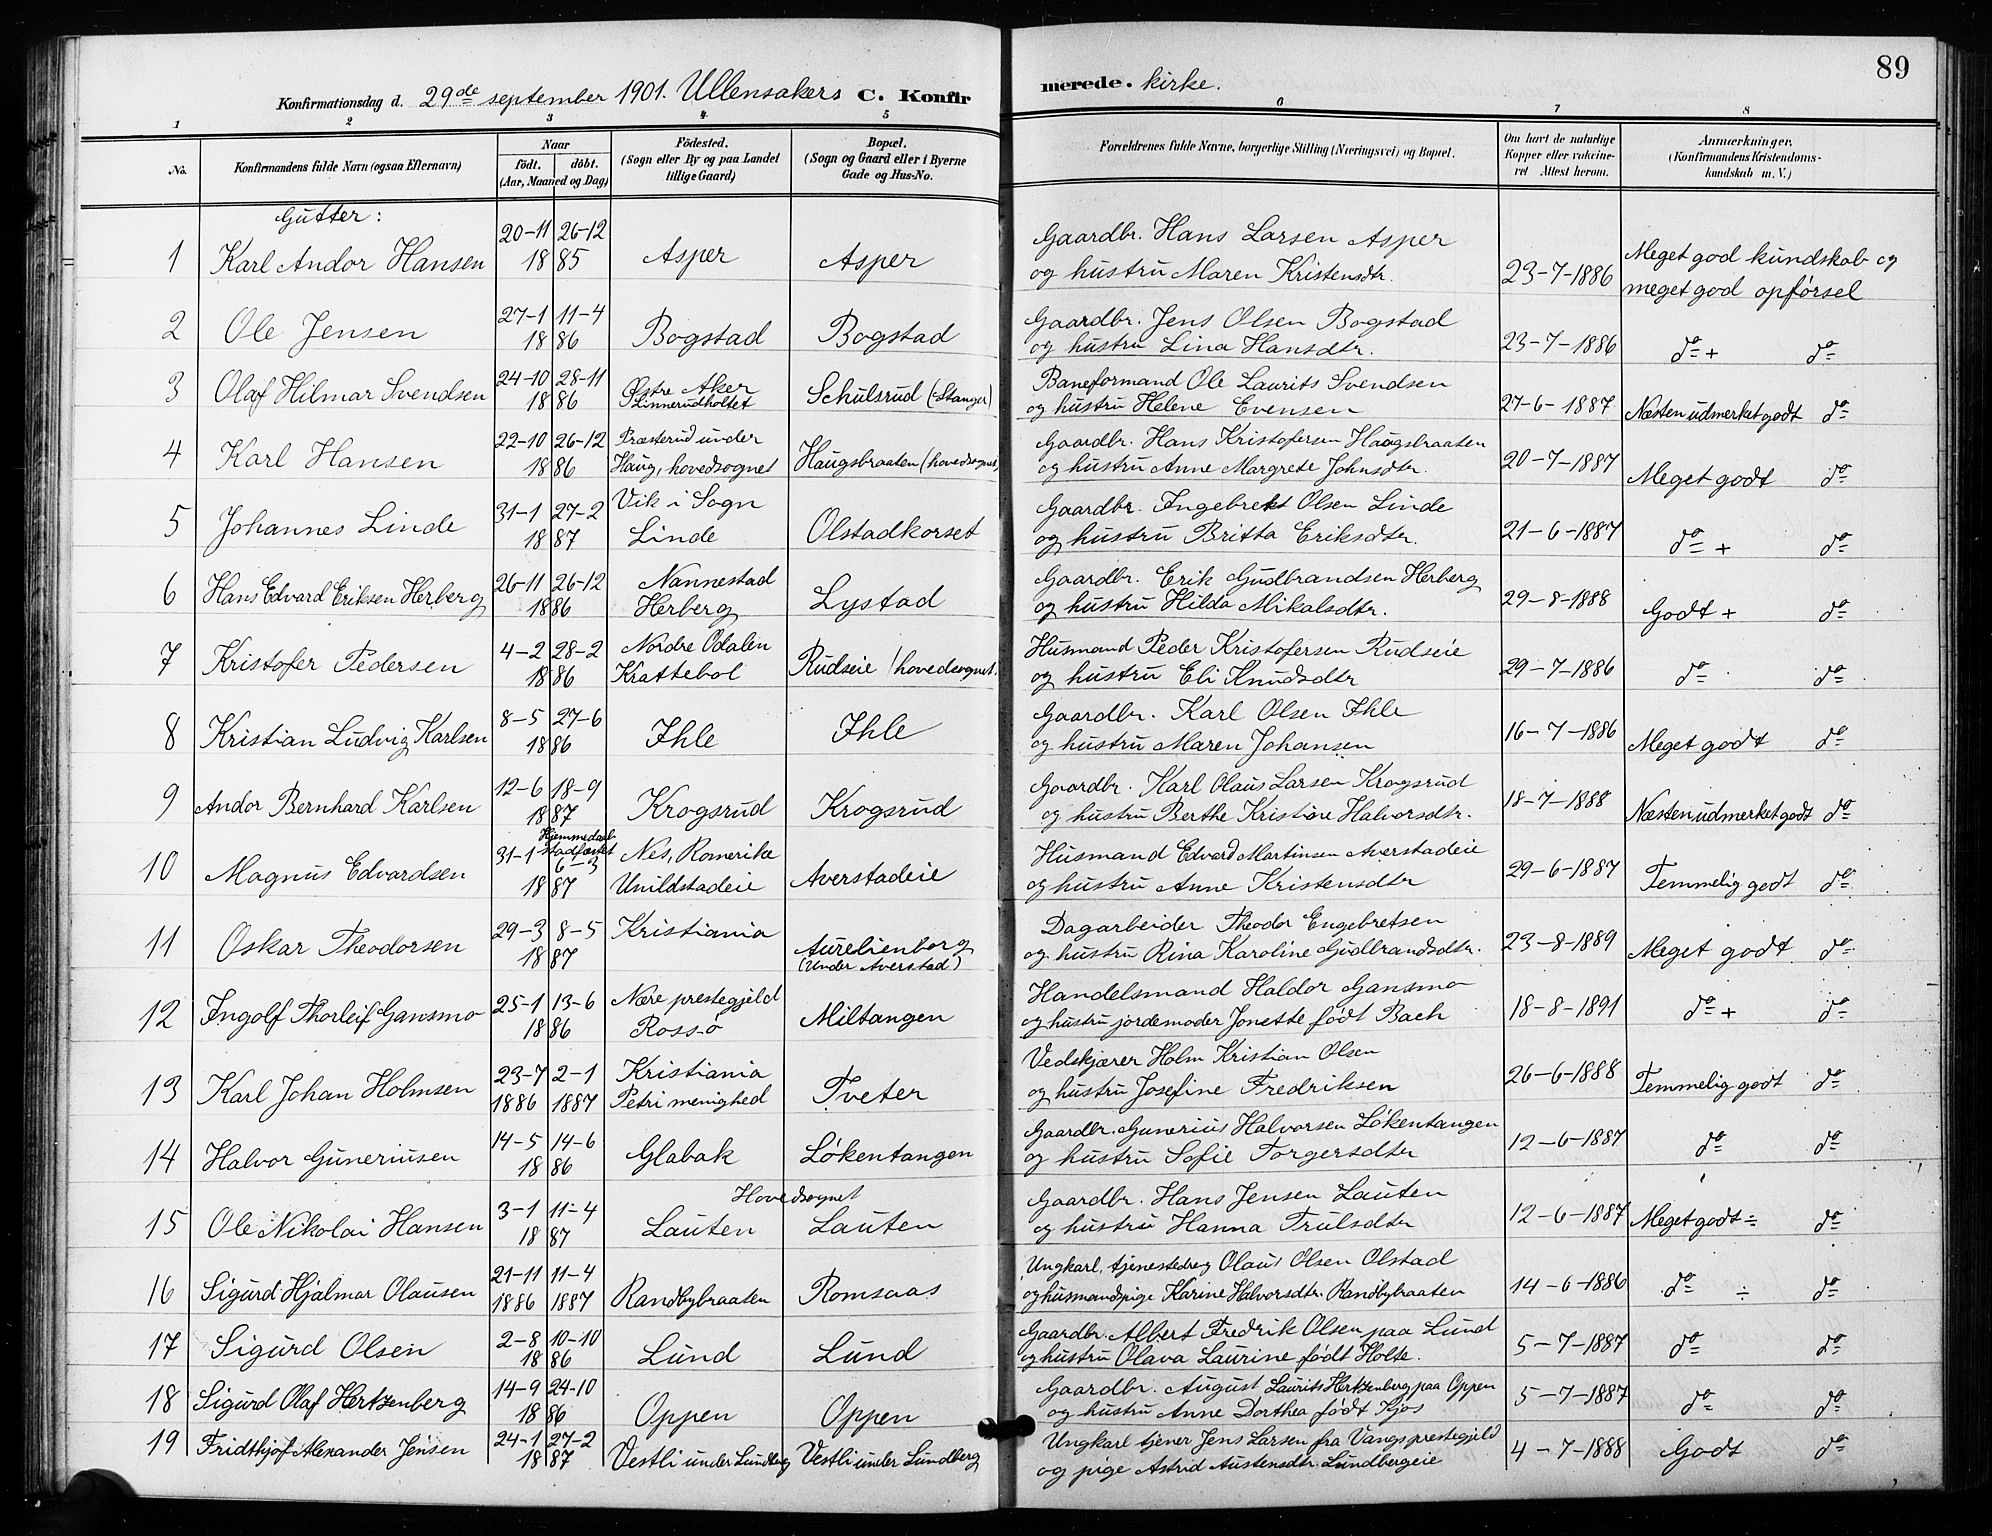 89
Konfirmationsdag d. 29de september 1901. Ullensakers C. Konfirmerede. kirke.
1 2 3 4 5 6 7 8
No. Konfirmandens fulde Navn (ogsaa Efternavn) Naar födt. döbt. (Aar, Maaned og Dag) Födested. (Sogn eller By og paa Landet tillige Gaard) Bopæl. (Sogn og Gaard eller i Byerne Gade og Hus-No. Forældrenes fulde Navne, borgerlige Stilling (Næringsvei) og Bopæl. Om havt de naturlige Kopper eller vakcineret Attest herom. Anmærkninger, (Konfirmandens Kristendomskundskab m. V.)
Gutter:
1 Karl Andor Hansen 20-11 26-12 1885 Asper Asper Gaardbr. Hans Larsen Asper og hustru Maren Kristensdtr. 23-7-1886 Meget god kundskab og meget god opførsel
2 Ole Jensen 27-1 11-4 1886 Bogstad Bogstad Gaardbr. Jens Olsen Bogstad og hustru Lina Hansdtr. 23-7-1886 do + do
3 Olaf Hilmar Svendsen 24-10 28-11 1886 Østre Aker Linnerudholtet Schulsrud (Stanger) Baneformand Ole Laurits Svendsen og hustru Helene Evensen 27-6-1887 Næsten udmerket godt do
4 Karl Hansen 22-10 26-12 1886 Præsterud under Haug, hovedsognet Haugsbraaten (hovedsognet) Gaardbr. Hans Kristofersen Haugsbraaten og hustru Anne Margrete Johnsdtr. 20-7-1887 Meget godt do
5 Johannes Linde 31-1 27-2 1887 Vik i Sogn Linde Olstadkorset Gaardbr. Ingebrekt Olsen Linde og hustru Britta Eriksdtr. 21-6-1887 do + do
6 Hans Edvard Eriksen Herberg 26-11 26-12 1886 Nannestad Herberg Lystad Gaardbr. Erik Gudbrandsen Herberg og hustru Hilda Mikalsdtr. 29-8-1888 Godt + do
7 Kristofer Pedersen 4-2 28-2 1886 Nordre Odalen Krattebol Rudseie (hovedsognet. Husmand Peder Kristofersen Rudseie og hustru Eli Knudsdtr 29-7-1886 do do
8 Kristian Ludvig Karlsen 8-5 27-6 1886 Ihle Ihle Gaardbr. Karl Olsen Ihle og hustru Maren Johansen 16-7-1886 Meget godt do
9 Andor Bernhard Karlsen 12-6 18-9 1887 Krogsrud Krogsrud Gaardbr. Karl Olaus Larsen Krogsrud og hustru Berthe Kristine Halvorsdtr. 18-7-1888 Næsten udmerket godt do
10 Magnus Edvardsen 31-1 Hjemmedaab stadfæstet 6-3 1887 Nes, Romerike Unildstadeie Averstadeie Husmand Edvard Martinsen Averstadeie og hustru Anne Kristensdtr 29-6-1887 Temmelig godt do
11 Oskar Theodorsen 29-3 8-5 1887 Kristiania Aurelienborg (under Averstad) Dagarbeider Theodor Engebretsen og hustru Rina Karoline Gudbrandsdtr. 23-8-1889 Meget godt do
12 Ingolf Thorleif Gansmo 25-1 13-6 1886 Nære prestegjeld Rossø Miltangen Handelsmand Haldor Gansmo og hustru jordemoder Jonette født Bach 18-8-1891 do + do
13 Karl Johan Holmsen 23-7 1886 2-1 1887 Kristiania Petri menighed Tveter Vedskjærer Holm Kristian Olsen og hustru Josefine Fredriksen 26-6-1888 Temmelig godt do
14 Halvor Guneriusen 14-5 14-6 1886 Glabak Løkentangen Gaardbr. Gunerius Halvorsen Løkentangen og hustru Sofie Torgersdtr 12-6-1887 do do
15 Ole Nikolai Hansen 3-1 11-4 1887 Hovedsognet Lauten Lauten Gaardbr. Hans Jensen Lauten og hustru Hanna Trulsdtr 12-6-1887 Meget godt ÷ do
16 Sigurd Hjalmar Olausen 21-11 1886 11-4 1887 Randbybraaten Romsaas Ungkarl, tjenestedreng Olaus Olsen Olstad og husmandspige Karine Halvorsdtr. Randbybraaten 14-6-1886 do ÷ do
17 Sigurd Olsen 2-8 10-10 1886 Lund Lund Gaardbr. Albert Fredrik Olsen paa Lund og hustru Olava Laurine født Holte. 5-7-1887 do do
18 Sigurd Olaf Hertzenberg 14-9 24-10 1886 Oppen Oppen Gaardbr. August Laurits Hertzenberg paa Oppen og hustru Anne Dorthea født Kjos 5-7-1887 do do
19 Fridthjof Alexander Jensen 24-1 27-2 1887 Vestli under Lundberg Vestli under Lundberg Ungkarl tjener Jens Larsen fra Vangs prestegjeld og pige Astrid Austensdtr. Lundbergeie 4-7-1888 Godt do